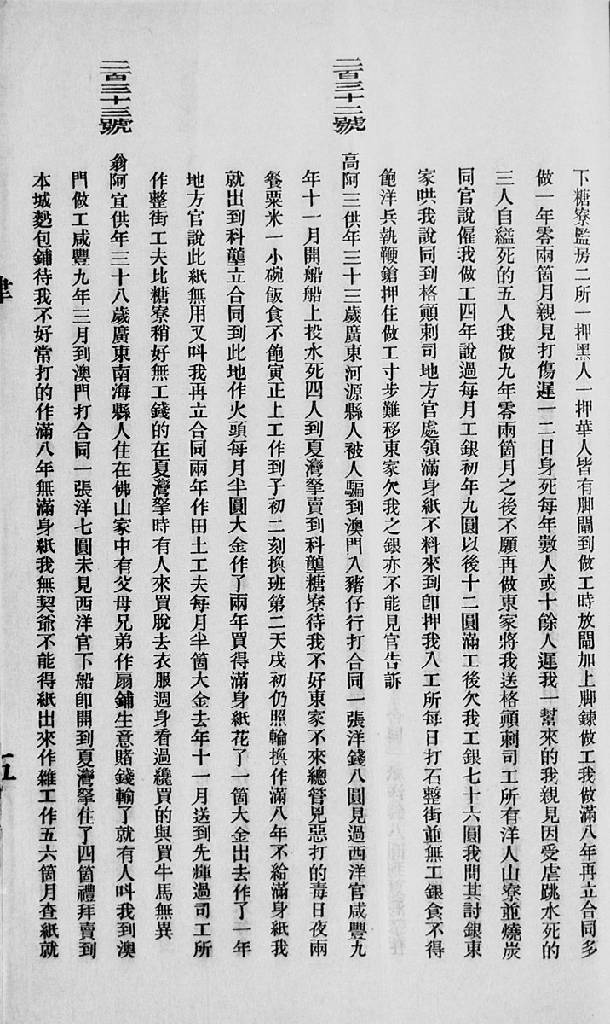 下糖寮監房二所一押黑人一押華人皆有脚閘到做工時放閘加上脚鍊做工我做滿八年再立合同多
做一年零兩箇月親見打傷遲一二日身死每年數人或十餘人遲我一幫來的我親見因受虐跳水死的
三人自縊死的五人我做九年零兩箇月之後不願再做東家將我送格顛刺司工所有洋人山寮並燒炭
同官說僱我做工四年說過每月工銀初年九圓以後十二圓滿工後欠我工銀七十六圓我問其討銀東
家哄我說同到格顛刺司地方官處領滿身紙不料來到卽押我入工所每日打石整街並無工銀食不得
飽洋兵執鞭鎗押住做工寸步難移東家欠我之銀亦不能見官告訴
二百三十二號
高阿三供年三十三歲廣東河源縣人被人騙到澳門入豬仔行打合同一張洋錢八圓見過西洋官咸豐九
年十一月開船船上投水死四人到夏灣拏賣到科蘴糖寮待我不好東家不來總管兇惡打的毒日夜兩
餐粟米一小碗飯食不飽寅正上工作到子初二刻換班第二天戌初仍照輪換作滿八年不給滿身紙我
就出到科蘴立合同到此地作火頭每月半圓大金作了兩年買得滿身紙花了一箇大金出去作了一年
地方官說此紙無用又呌我再立合同兩年作田土工夫每月半箇大金去年十一月送到先輝過司工所
作整街工夫比糖寮稍好無工錢的在夏灣拏時有人來買脫去衣服週身看過纔買的與買牛馬無異
二百三十三號
翁阿宜供年三十八歲廣東南海縣人住在佛山家中有父母兄弟作扇鋪生意賭錢輸了就有人呌我到澳
門做工咸豐九年三月到澳門打合同一張洋七圓未見西洋官下船卽開到夏灣拏住了四箇禮拜賣到
本城麪包鋪待我不好常打的作滿八年無滿身紙我無契爺不能得紙出來作雜工作五六箇月查紙就